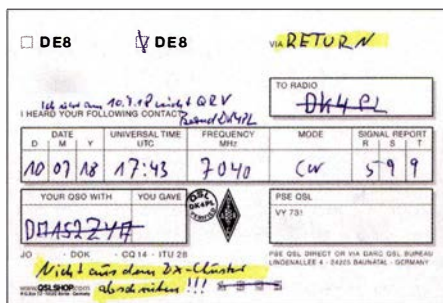 DE8 DE8 VIA RETURN
TO RADIO
DK4PL
Ich war am 10.7.18 nicht QRV
I HEARD YOUR FOLLOWING CONTACT: DK4PL
DATE UNIVERSAL TIME FREQUENCY MODE SIGNAL REPORT
D M Y UTC MHz R S T
10 07 18 17:43 7040 CW 5 9 9
YOUR QSO WITH YOU GAVE QSL DK4PL VERIFIED PSE QSL
VY 73!
JO DOK CQ 14 ITU 28
PSE QSL DIRECT OR VIA DARC QSL BUREAU
LINDENALLEE 4 - 34225 BAUNATAL - GERMANY
Nicht aus dem DX-Cluster
abschreiben !!!
www.QSLSHOP.com